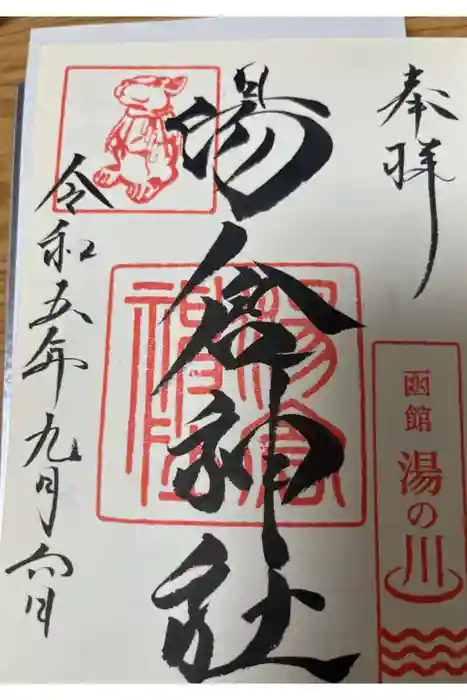 奉拝
函館
湯の川
湯倉神社
湯倉神社
令和五年九月六日